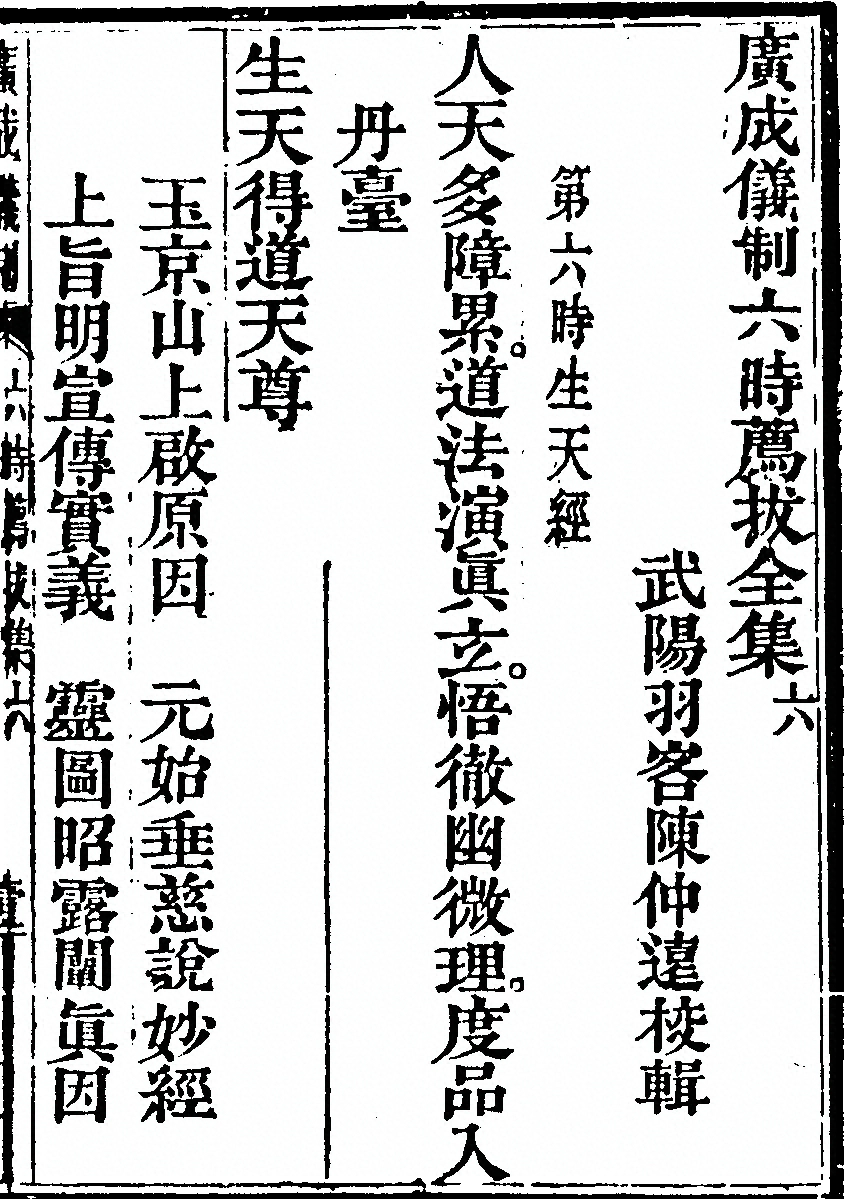 廣成儀制六時薦拔全集六
武陽羽客陳仲遠校輯
第六時生天經
人天多障累。道法演眞立。悟徹幽微理。度品入
丹臺
生天得道天尊
玉京山上啟原因　元始垂慈說妙經
上旨明宣傳實義　靈圖昭露闡眞因
廣成儀制　六時薦拔集六